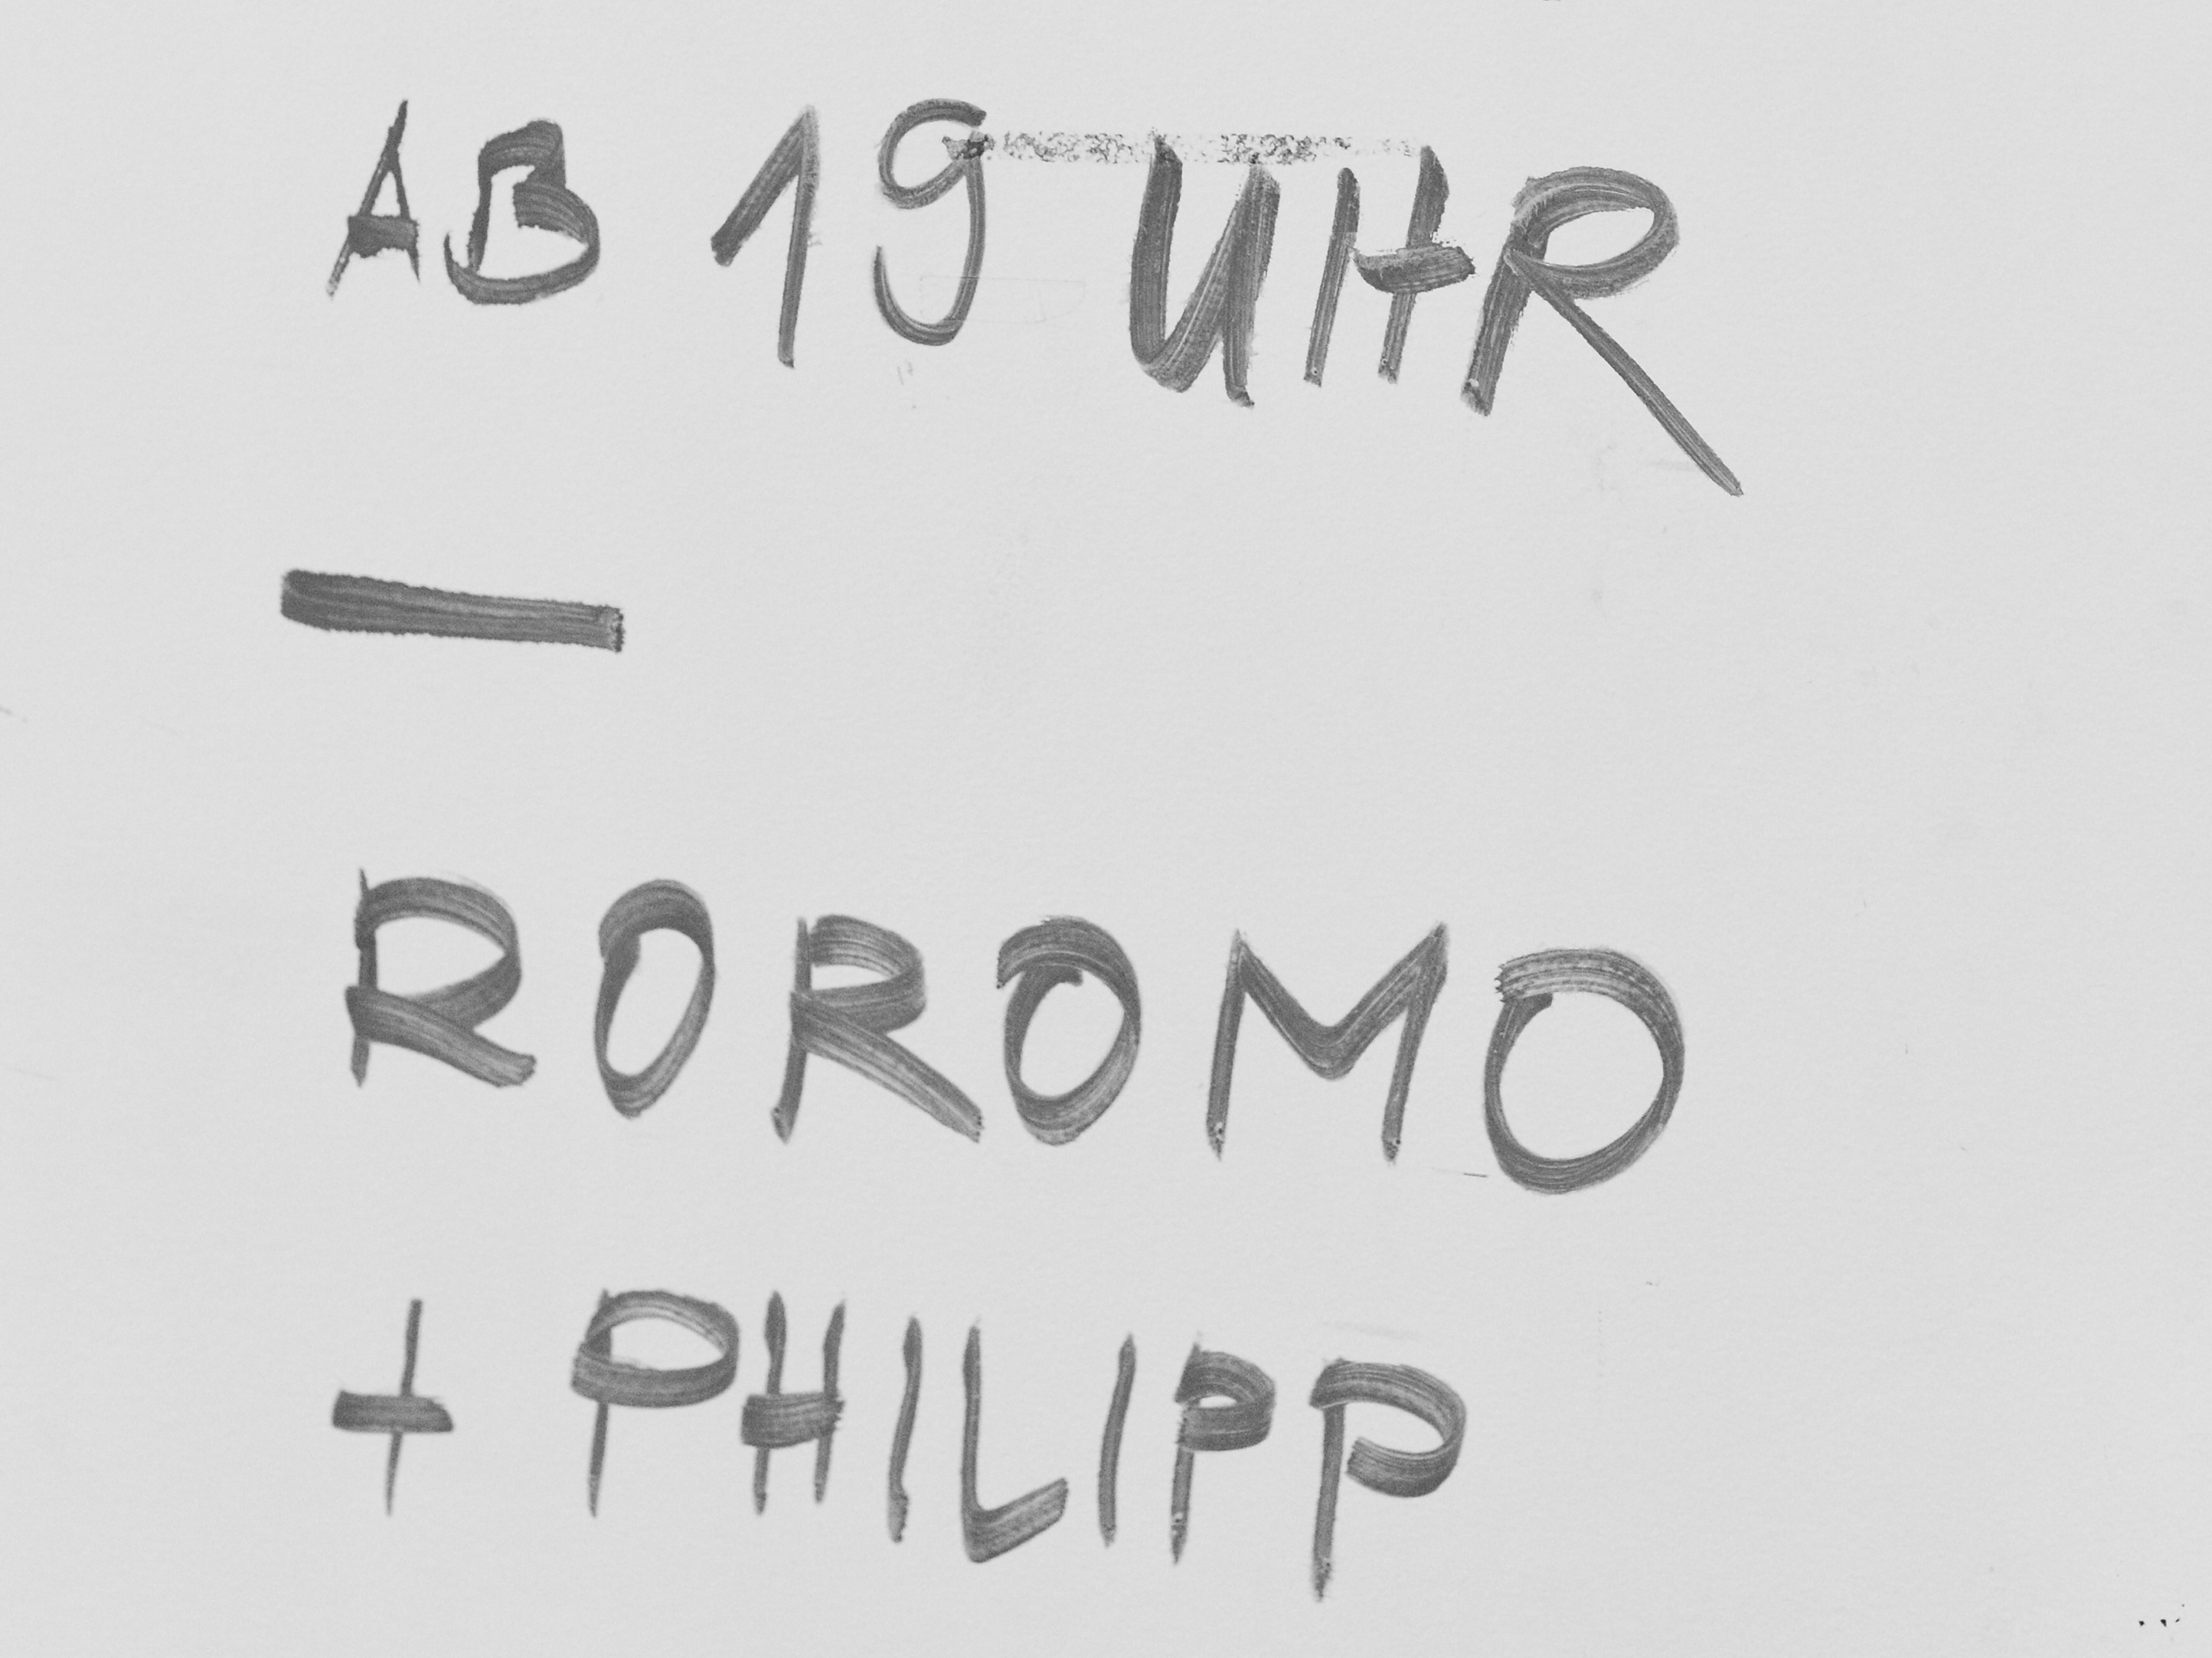 AB 19 UHR
—
ROROMO
+ PHILIPP